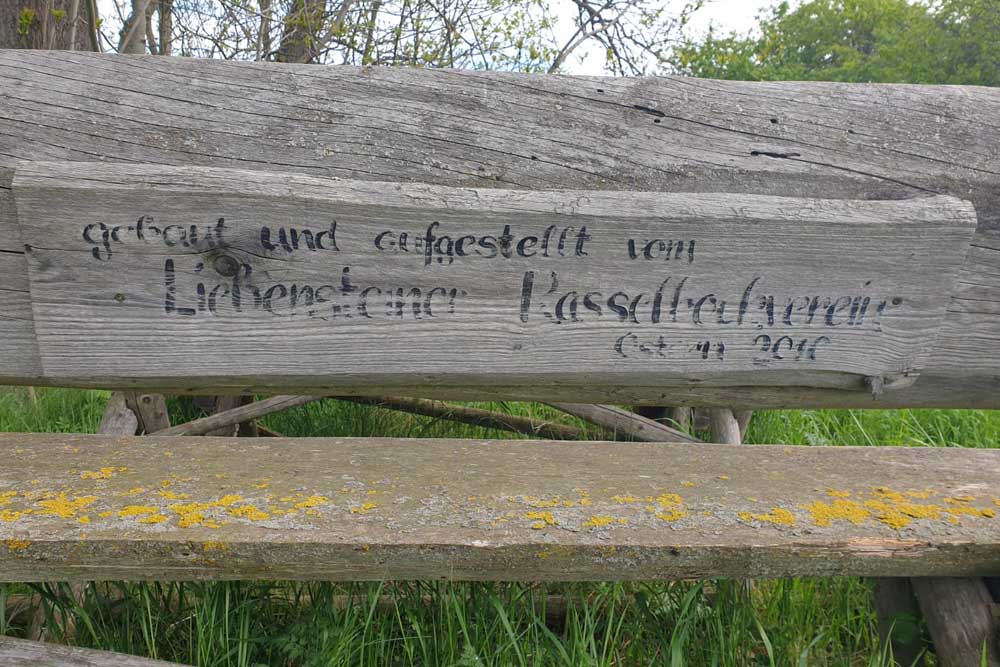 gebaut und aufgestellt vom
Liebensteiner Kasselbockverein
Ostern 2010